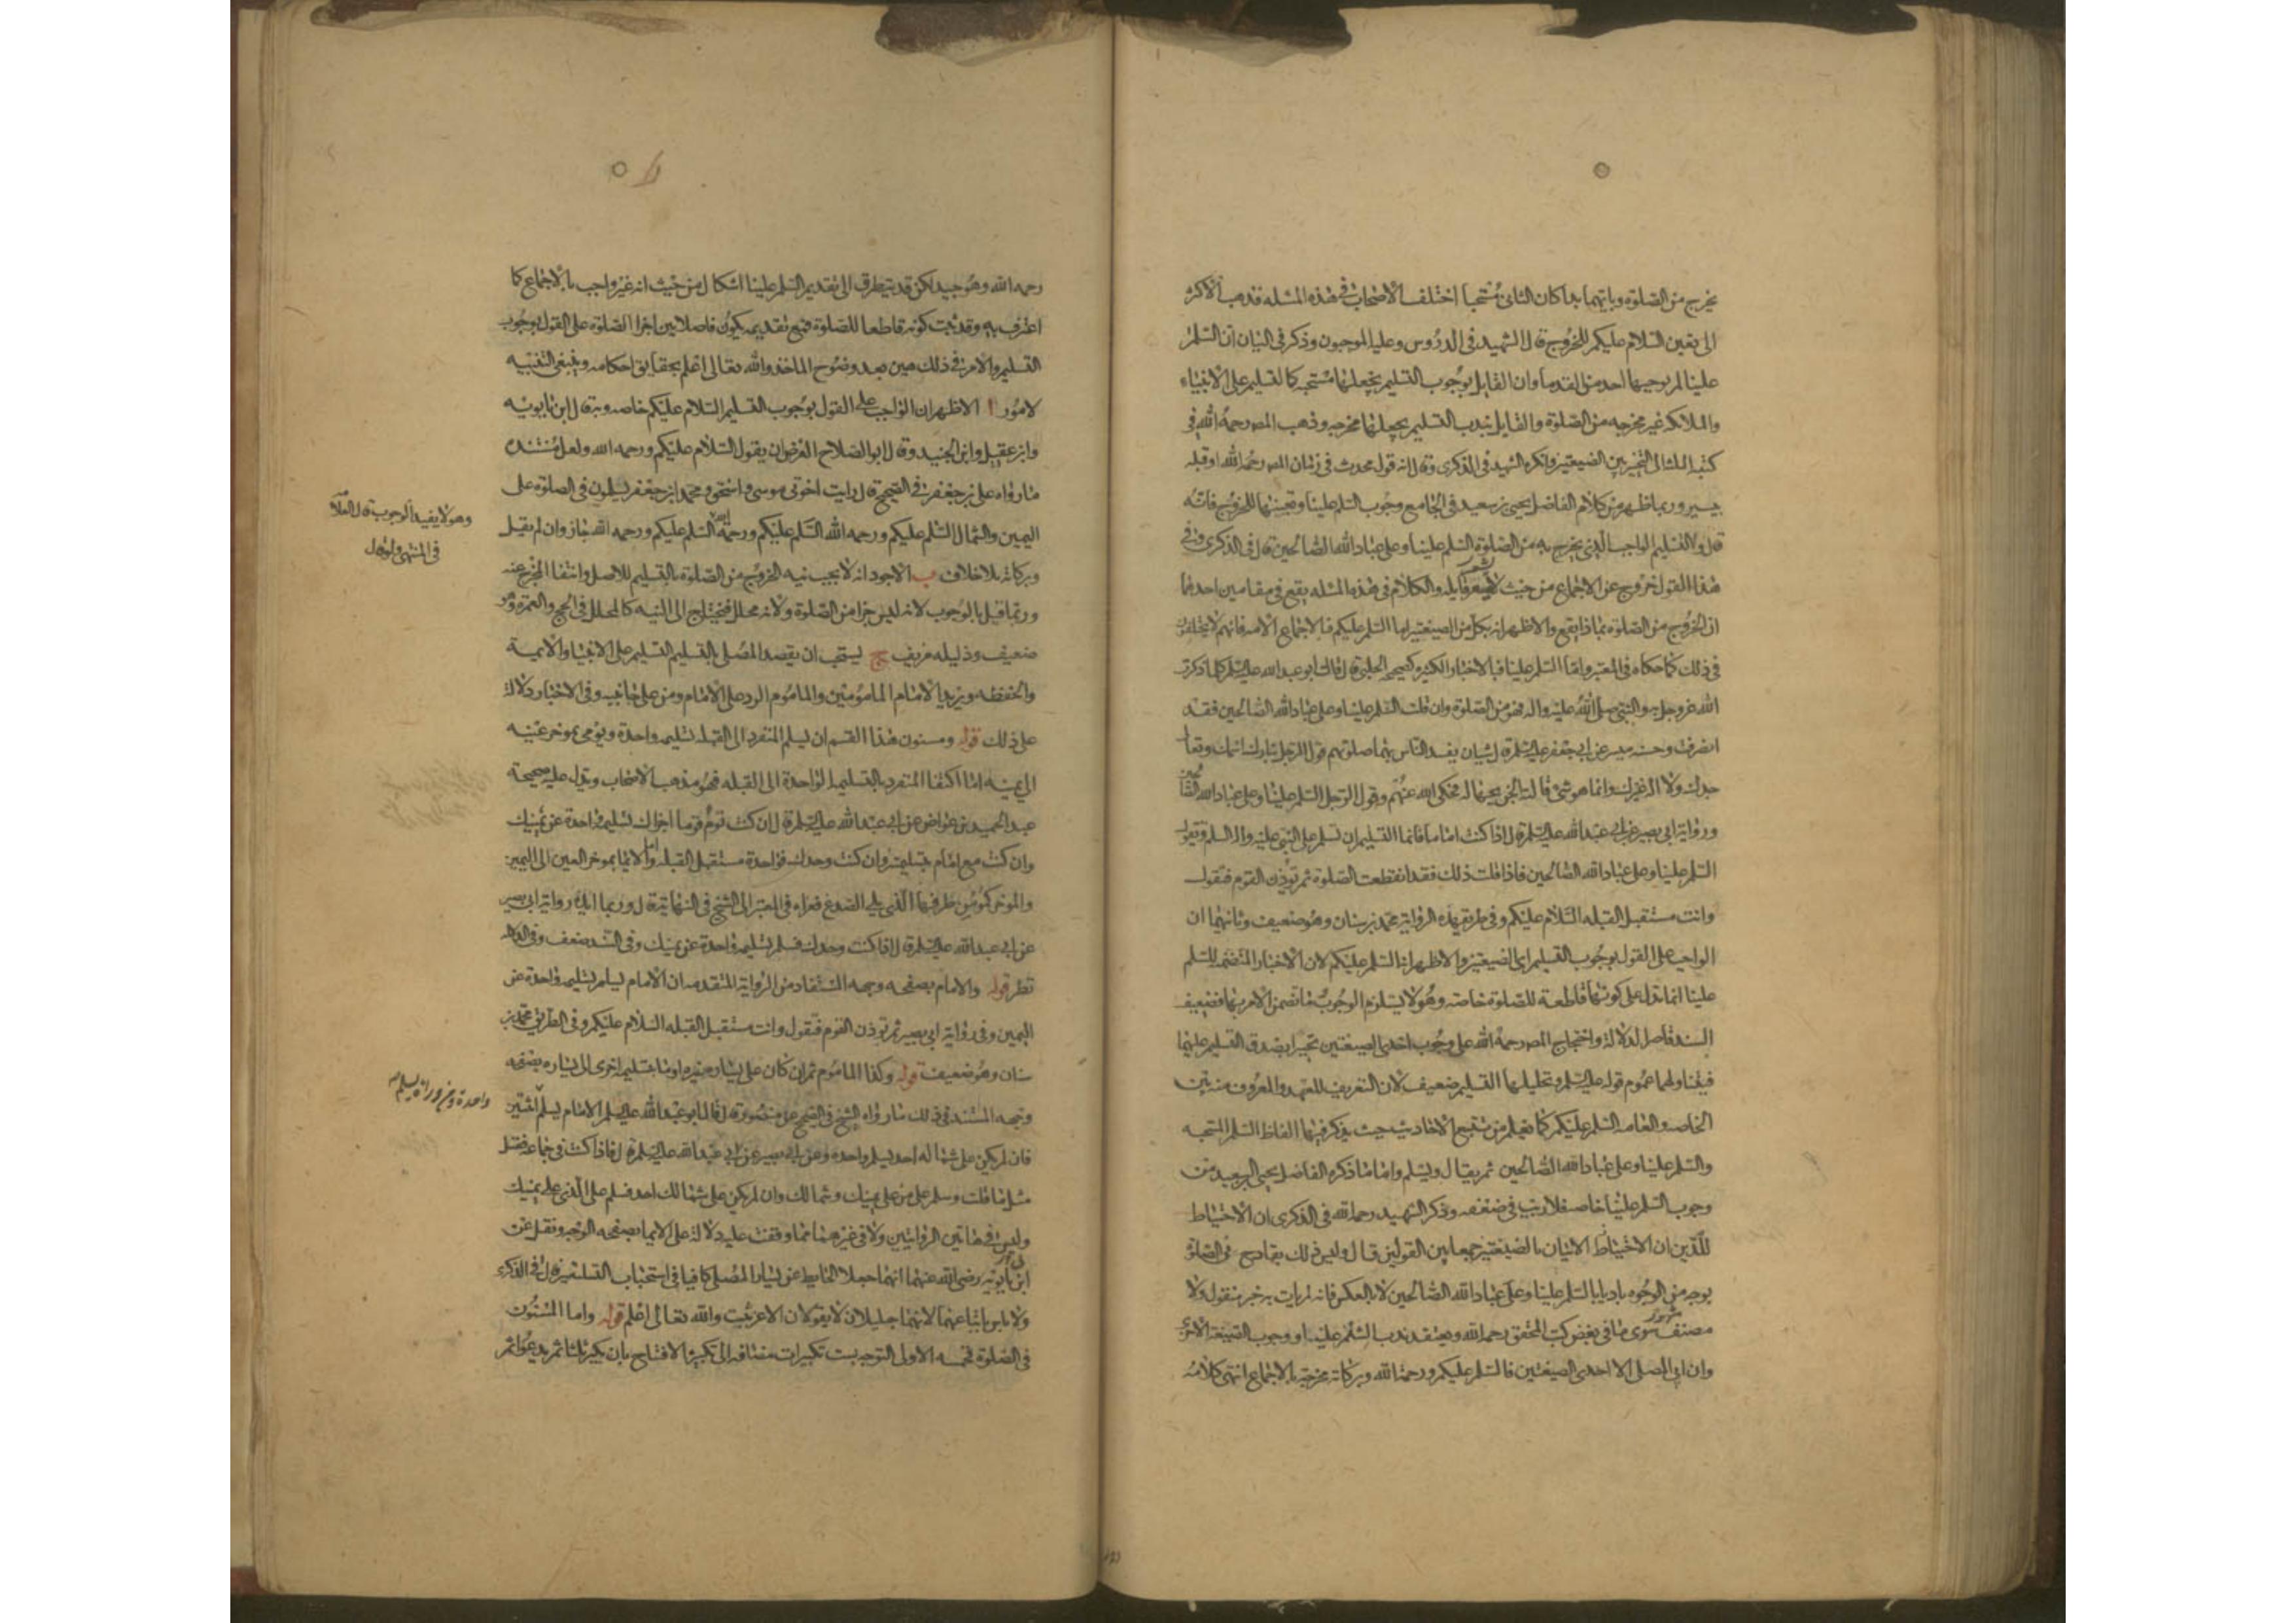 يخرج من الصلوة وبايهما بدا كان الثانى مستحبا اختلف الاصحاب فى هذه المسئله فذهب الاكثر
الى تعين السلام عليكم للخروج قال الشهيد فى الدروس وعليه الموجبون وذكر فى البيان ان السلم
علينا لم يوجبها احد من القدما وان القايل بوجوب التسليم يجعلها مستحبه كالتسليم على الانبياء
والملائكه غير مخرجه من الصلوة والقايل بندب التسليم يجعلها مخرجه وذهب المصر رحمه الله فى
كتبه الثلث الى التخيير بين الصيغتين وانكره الشهيد فى الذكرى وقال انه قول محدث فى زمان المصر رحمه الله او قبله
بيسير وربما ظهر من كلام الفاضل يحيى بن سعيد فى الجامع وجوب السلم علينا وتعيينها للخروج فانه
قال والتسليم الواجب الذى يخرج به من الصلوة السلم علينا وعلى عباد الله الصالحين قال فى الذكرى وفى
هذا القول خروج عن الاجماع من حيث لا يشعر قايله والكلام فى هذه المسئله يقع فى مقامين احدهما
ان الخروج من الصلوة بماذا يقع والاظهر انه بكل من الصيغتين اما السلم عليكم فبالاجماع الامه فانهم لا يختلفون
فى ذلك كما حكاه فى المعتبر واما السلم علينا فبالاخبار الكثيره كصحيحه الحلبى قال قال ابو عبد الله عليه السلم كلما ذكرت
الله عز وجل به والنبى صلى الله عليه واله فهو من الصلوة وان قلت السلم علينا وعلى عباد الله الصالحين فقد
انصرفت وحسنه ميسر عن ابى جعفر عليه السلم قال شيان يفسد الناس بهما صلوتهم قول الرجل تبارك اسمك وتعالى
جدك ولا اله غيرك وانما هو شئ قالته الجن بجهاله فحكى الله عنهم وقول الرجل السلم علينا وعلى عباد الله الصالحين
ورواية ابى بصير عن ابى عبد الله عليه السلم قال اذا كنت اماما فانما التسليم ان تسلم على النبى عليه واله السلم وتقول
السلم علينا وعلى عباد الله الصالحين فاذا قلت ذلك فقد انقطعت الصلوة ثم توذن القوم فتقول
وانت مستقبل القبله السلام عليكم وفى طريق هذه الرواية محمد بن سنان وهو ضعيف وثانيهما ان
الواجب على القول بوجوب التسليم اى الصيغتين والاظهر انه السلم عليكم لان الاخبار المتضمنه للسلم
علينا انما تدل على كونها قاطعة للصلوة خاصه وهو لا يستلزم الوجوب وما تضمن الامر بها فضعيف
السند قاصر الدلالة واحتجاج المصر رحمه الله على وجوب احدى الصيغتين تخييرا بصدق التسليم عليهما
فيتناولهما عموم قوله عليه السلم وتحليلها التسليم ضعيف لان التعريف للعهد والمعروف منه بين
الخاصه والعامه السلم عليكم كما يعلم من تتبع الاحاديث حيث يذكر فيها الفاظ السلم المستحبه
والسلم علينا وعلى عباد الله الصالحين ثم يقال ويسلم واما ما ذكره الفاضل يحيى بن سعيد من
وجوب السلم علينا خاصه فلا ريب فى ضعفه وذكر الشهيد رحمه الله فى الذكرى ان الاحتياط
للدين ان الاحتياط الاتيان بالصيغتين جمعا بين القولين قال وليس ذلك بقادح فى الصلوة
بوجه من الوجوه باديا بالسلم علينا وعلى عباد الله الصالحين لا بالعكس فانه لم يات به خبر منقول ولا
مصنف مشهور سوى ما فى بعض كتب المحقق رحمه الله ويعتقد ندب السلم علينا ووجوب الصيغة الاخرى
وان ابى المصلى الا احدى الصيغتين فالسلم عليكم ورحمة الله وبركاته مخرجة بالاجماع انتهى كلامه
رحمه الله وهو جيد لكن قد يتطرق الى تقديم السلم علينا اشكال من حيث انه غير واجب بالاجماع كما
اعترف به وقد ثبت كونه قاطعا للصلوة فمع تقديمه يكون فاصلا بين اجزا الصلوة على القول بوجوب
التسليم والامر فى ذلك هين بعد وضوح الماخذ والله تعالى اعلم بحقايق احكامه وينبغى التنبيه
لامور ا الاظهر ان الواجب على القول بوجوب التسليم السلام عليكم خاصه وبه قال ابن بابويه
وابن عقيل وابن الجنيد وقال ابو الصلاح الفرض ان يقول السلام عليكم ورحمه الله ولعل مستنده
ما رواه على بن جعفر فى الصحيح قال رايت اخوتى موسى واسحق ومحمد ابن جعفر يسلمون فى الصلوة على
اليمين والشمال السلم عليكم ورحمه الله السلم عليكم ورحمة الله السلم عليكم ورحمه الله جاز وان لم يقل
وهو لا يفيد الوجوب قال العلامة
فى المنتهى ولو قال
وبركاته بلا خلاف ب الاجود انه لا يجب نيه الخروج من الصلوة بالتسليم للاصل وانتفا المخرج عنه
وربما قيل بالوجوب لانه ليس جزا من الصلوة ولانه محلل فيحتاج الى النيه كالمحلل فى الحج والعمرة وهو
ضعيف ودليله مزيف ج يستحب ان يقصد المصلى بالتسليم التسليم على الانبيا والايمة
والحفظه ويزيد الامام المامومين والماموم الرد على الامام ومن على جانبيه وفى الاخبار دلالة
على ذلك قوله ومسنون هذا القسم ان يسلم المنفرد الى القبله تسليمه واحدة ويومى بموخر عينيه
الى يمينه اما اكتفا المنفرد بالتسليمه الواحدة الى القبله فهو مذهب الاصحاب ويدل عليه صحيحة
عبد الحميد بن عواض عن ابى عبد الله عليه السلم قال ان كنت توم قوما اجزاك تسليمه واحدة عن يمينك
وان كنت مع امام فتسليمتين وان كنت وحدك فواحدة مستقبل القبله واما الايما بموخر العين الى اليمين
والموخر كمومن طرفها الذى يلى الصدغ فعزاه فى المعتبر الى الشيخ فى النهاية قال وربما ايده رواية ابى بصير
عن ابى عبد الله عليه السلم قال اذا كنت وحدك فسلم تسليمه واحدة عن يمينك وفى السند ضعف وفى الدلالة
نظر قوله والامام بصفحه وجهه المستفاد من الرواية المتقدمه ان الامام يسلم تسليمه واحدة عن
اليمين وفى رواية ابى بصير ثم توذن القوم فتقول وانت مستقبل القبله السلام عليكم وفى الطريق محمد بن
سنان وهو ضعيف قوله وكذا الماموم ثم ان كان على يساره غيره اومأ بتسليمه اخرى الى يساره بصفحه
وجهه المستند فى ذلك ما رواه الشيخ فى الصحيح عن منصور قال قال ابو عبد الله عليه السلم الامام يسلم اثنتين
واحدة ومن وراءه يسلم
فان لم يكن على شماله احد يسلم واحدة وعن ابى بصير عن ابى عبد الله عليه السلم قال فاذا كنت فى جماعه فقل
مثل ما قلت وسلم على من على يمينك وشمالك وان لم يكن على شمالك احد فسلم على الذين على يمينك
وليس فى هاتين الروايتين ولا فى غيرهما مما وقفت عليه دلالة على الايما بصفحه الوجه ونقل عن
ابنى بابويه رضى الله عنهما انهما جعلا الحايط عن يسار المصلى كافيا فى استحباب التسليمتين قال فى الذكرى
ولا باس باتباعهما لانهما جليلان لا يقولان الا عن ثبت والله تعالى اعلم قوله واما المسنون
فى الصلوة فخمسه الاول التوجه بست تكبيرات مضافه الى تكبيرة الافتتاح بان يكبر ثلثا ثم يدعو ثم